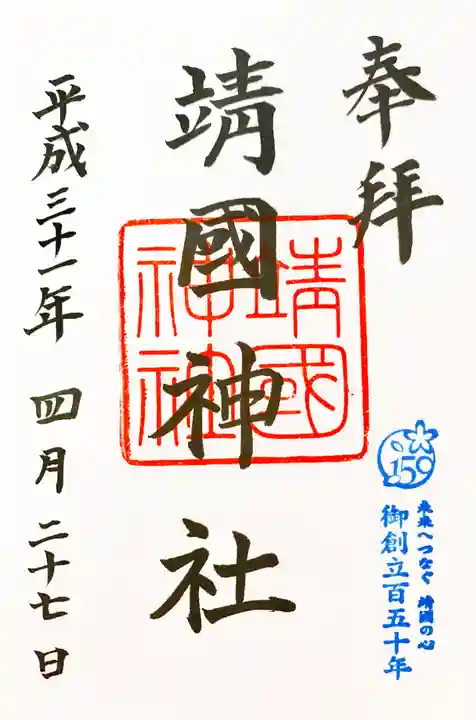 奉拝
靖國神社
靖國神社
平成三十一年 四月二十七日
159
未来へつなぐ 靖國の心
御創立百五十年